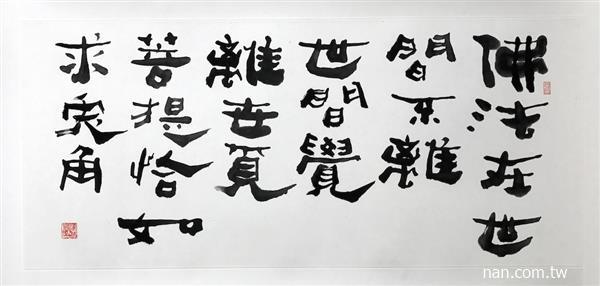 佛法在世
間不離
世間覺
離世覓
菩提恰如
求兔角
nan.com.tw